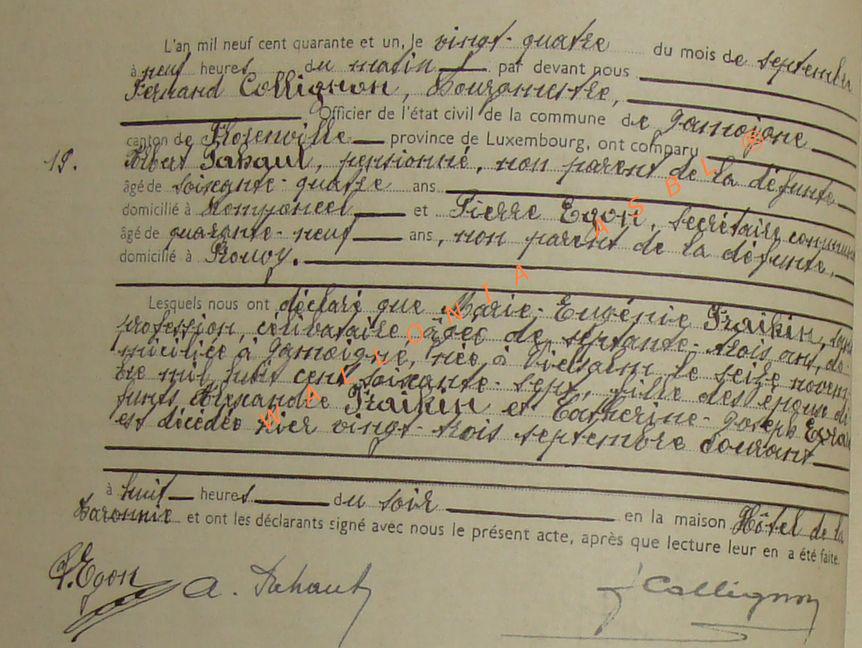 L'an mil neuf cent quarante et un, le vingt-quatre du mois de septembre
à neuf heures du matin par devant nous
Fernand Collignon, Bourgmestre,
Officier de l'état civil de la commune de Jamoigne
canton de Florenville province de Luxembourg, ont comparu
19. Albert Dahaut, pensionné, non parent de la défunte
âgé de soixante-quatre ans
domicilié à Romponcel et Pierre Egon, secrétaire communal
âgé de quarante-neuf ans, non parent de la défunte,
domicilié à Prouvy.
Lesquels nous ont déclaré que Marie-Eugénie Fraikin, sans
profession, célibataire, âgée de septante-trois ans, do
miciliée à Jamoigne, née à Vielsalm le seize novem
bre mil huit cent soixante-sept, fille des époux dé
funts Alexandre Fraikin et Catherine-Joseph
est décédée hier vingt-trois septembre courant
à huit heures du soir en la maison Hôtel de la
Baronnie et ont les déclarants signé avec nous le présent acte, après que lecture leur en a été faite.
P. Egon A. Dahaut F Collignon
WALLONIA ASBL ©